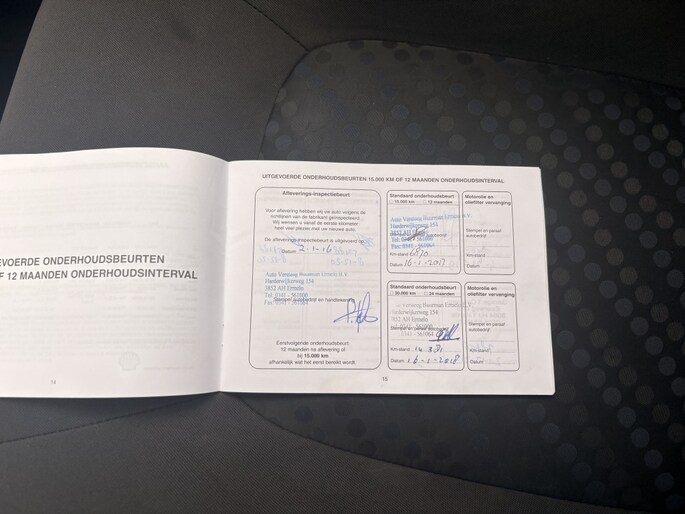 EVOERDE ONDERHOUDSBEURTEN
OF 12 MAANDEN ONDERHOUDSINTERVAL
14
UITGEVOERDE ONDERHOUDSBEURTEN 15.000 KM OF 12 MAANDEN ONDERHOUDSINTERVAL
Afleverings-inspectiebeurt
Voor aflevering hebben wij uw auto volgens de
richtlijnen van de fabrikant geïnspecteerd.
Wij wensen u vanaf de eerste kilometer
heel veel plezier met uw nieuwe auto.
De afleverings-inspectiebeurt is uitgevoerd op
Datum 2-1-16
Auto Versteeg Buurman Ermelo B.V.
Harderwijkerweg 154
3852 AH Ermelo
Tel: 0341 - 561000
Fax: 0341 - 561064
Stempel autobedrijf en handtekening
Eerstvolgende onderhoudsbeurt:
12 maanden na aflevering of
bij 15.000 km
afhankelijk wat het eerst bereikt wordt.
Standaard onderhoudsbeurt
15.000 km 12 maanden
Harderwijkerweg 154
3852 AH Ermelo
0341 - 561000
Fax: 0341 - 561064
Km-stand
Datum 16-1-2017
Motorolie en
oliefilter vervanging
Stempel en paraaf
autobedrijf
Km-stand
Standaard onderhoudsbeurt
30.000 km 24 maanden
Versteeg Buurman Ermelo B.V.
Harderwijkerweg 154
AH Ermelo
0341 - 561000
0341 - 561064
Stempel en paraaf autobedrijf
Km-stand 14381
Datum 16-1-2018
Motorolie en
oliefilter vervanging
Stempel en paraaf
autobedrijf
Km-stand
Datum
15